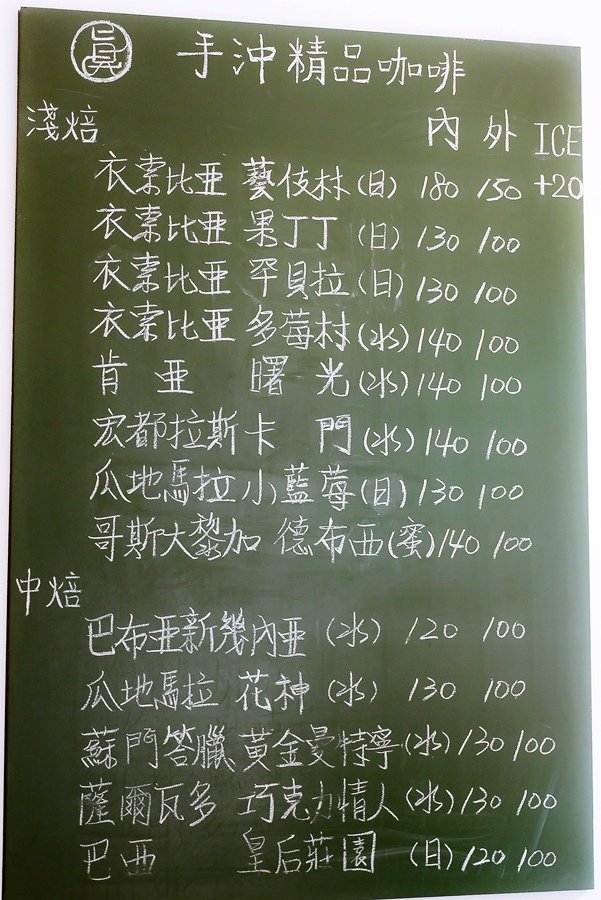 真 手沖精品咖啡
淺焙 內 外 ICE
+20
衣索比亜 藝伎林(日) 180 150
衣索比亜 果丁丁(日) 130 100
衣索比亜 罕貝拉(日) 130 100
衣索比亜 多莓村(水) 140 100
肯亜 曙光(水) 140 100
宏都拉斯卡門(水) 140 100
瓜地馬拉小藍莓(日) 130 100
哥斯大黎加 德布西(蜜) 140 100
中焙
巴布亜新幾內亜(水) 120 100
瓜地馬拉 花神(水) 130 100
蘇門答臘 黃金曼特寧(水) 130 100
薩爾瓦多 巧克力情人(水) 130 100
巴西 皇后莊園(日) 120 100